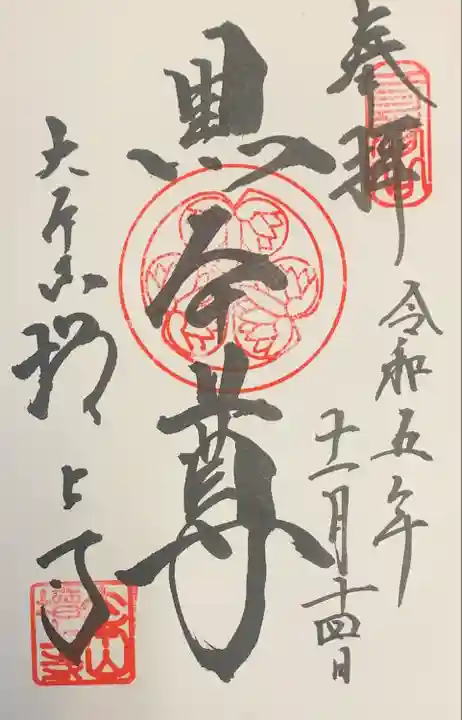 奉拝
令和五年
十一月十四日
黒本尊
大本山増上寺